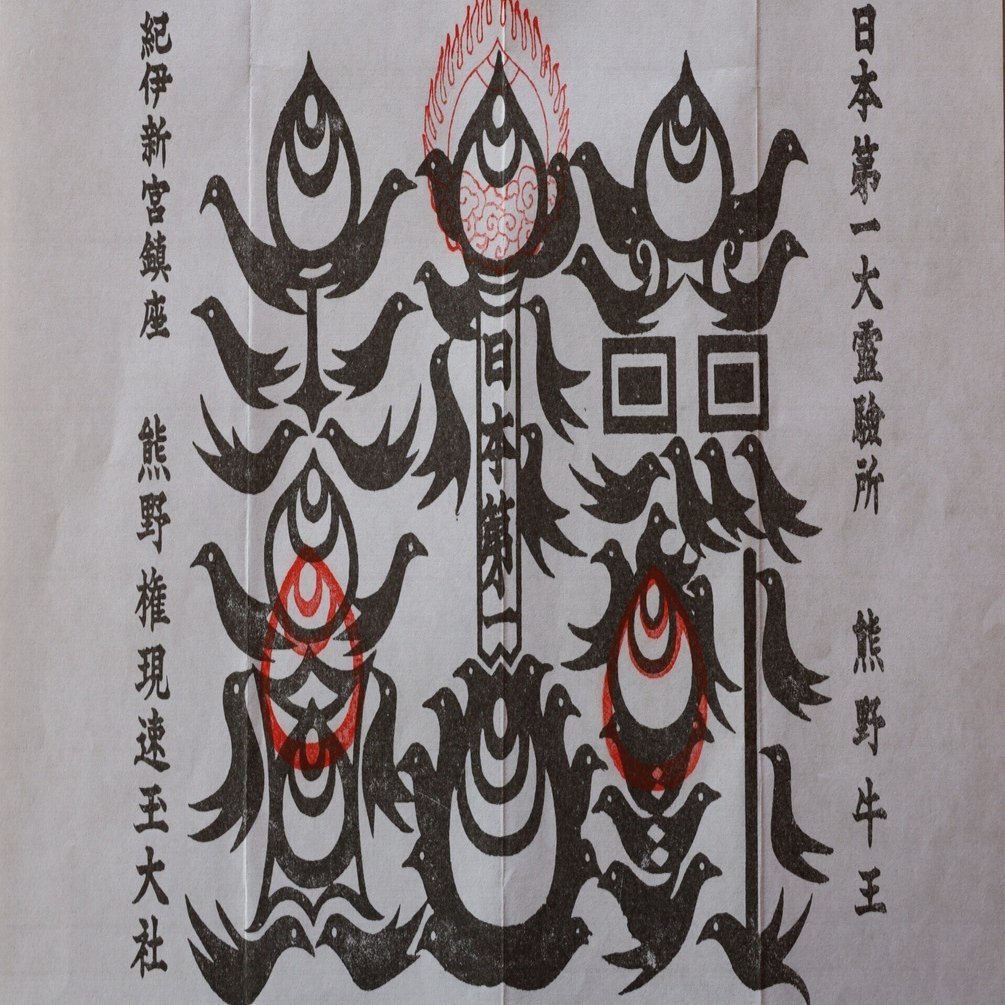 日本第一大靈驗所　熊野牛王
日本第一
紀伊新宮鎮座　熊野権現速玉大社